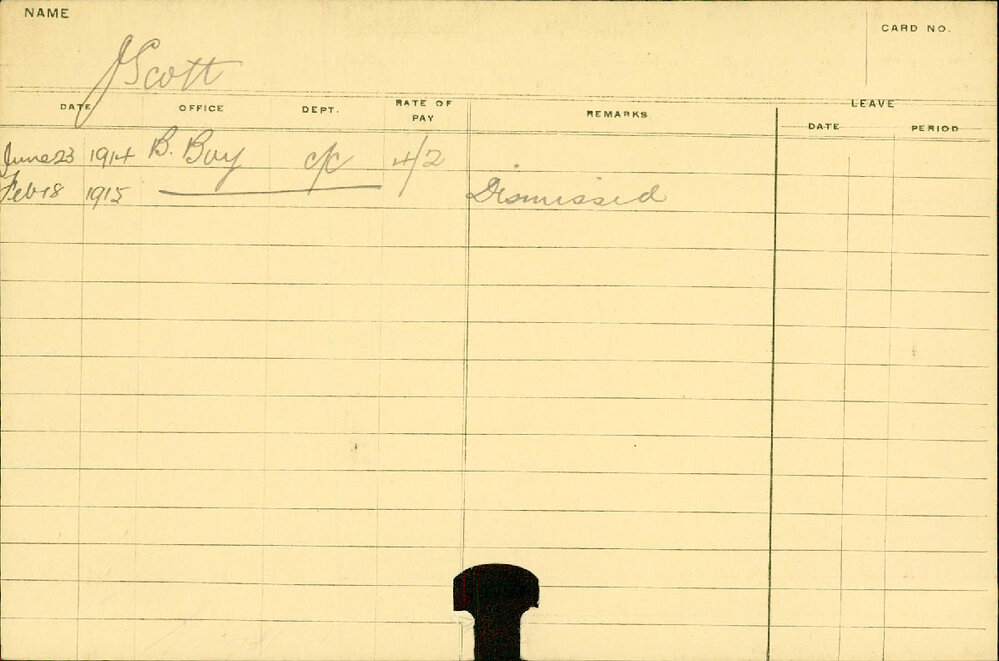 NAME
CARD NO.
J Scott
DATE OFFICE DEPT. RATE OF PAY REMARKS LEAVE
DATE PERIOD
June 23 1914 B. Boy c/c 4/2
Feb 18 1915 Dismissed